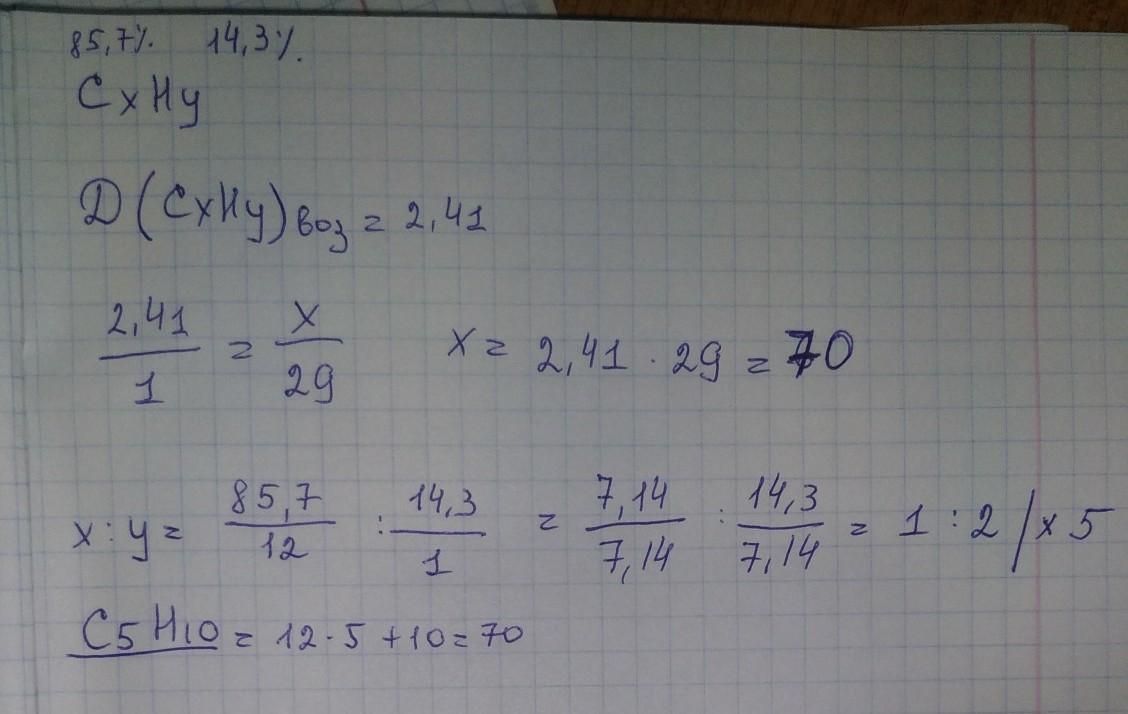 85,7% 14,3%.
CxHy
D(CxHy)воз = 2,41
2,41/1 = x/29 x = 2,41 · 29 = 70
x : y = 85,7/12 : 14,3/1 = 7,14/7,14 : 14,3/7,14 = 1 : 2 / x 5
C5H10 = 12 · 5 + 10 = 70